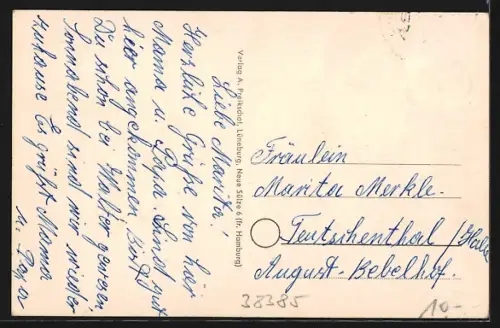 Liebe Marita!
Herzliche Grüße von hier
Mama u. Papa. Sind gut
hier angekommen. Bist
Du schon bei Walter gewesen.
Sonnabend sind wir wieder
zuhause. Es grüßt Mama
u. Papa.
Verlag A. Preikschat, Lüneburg, Neue Sülze 6 (fr. Hamburg)
Fräulein
Marita Merkle.
Teutschenthal /Halle
August-Bebelhof.
38385
10.-